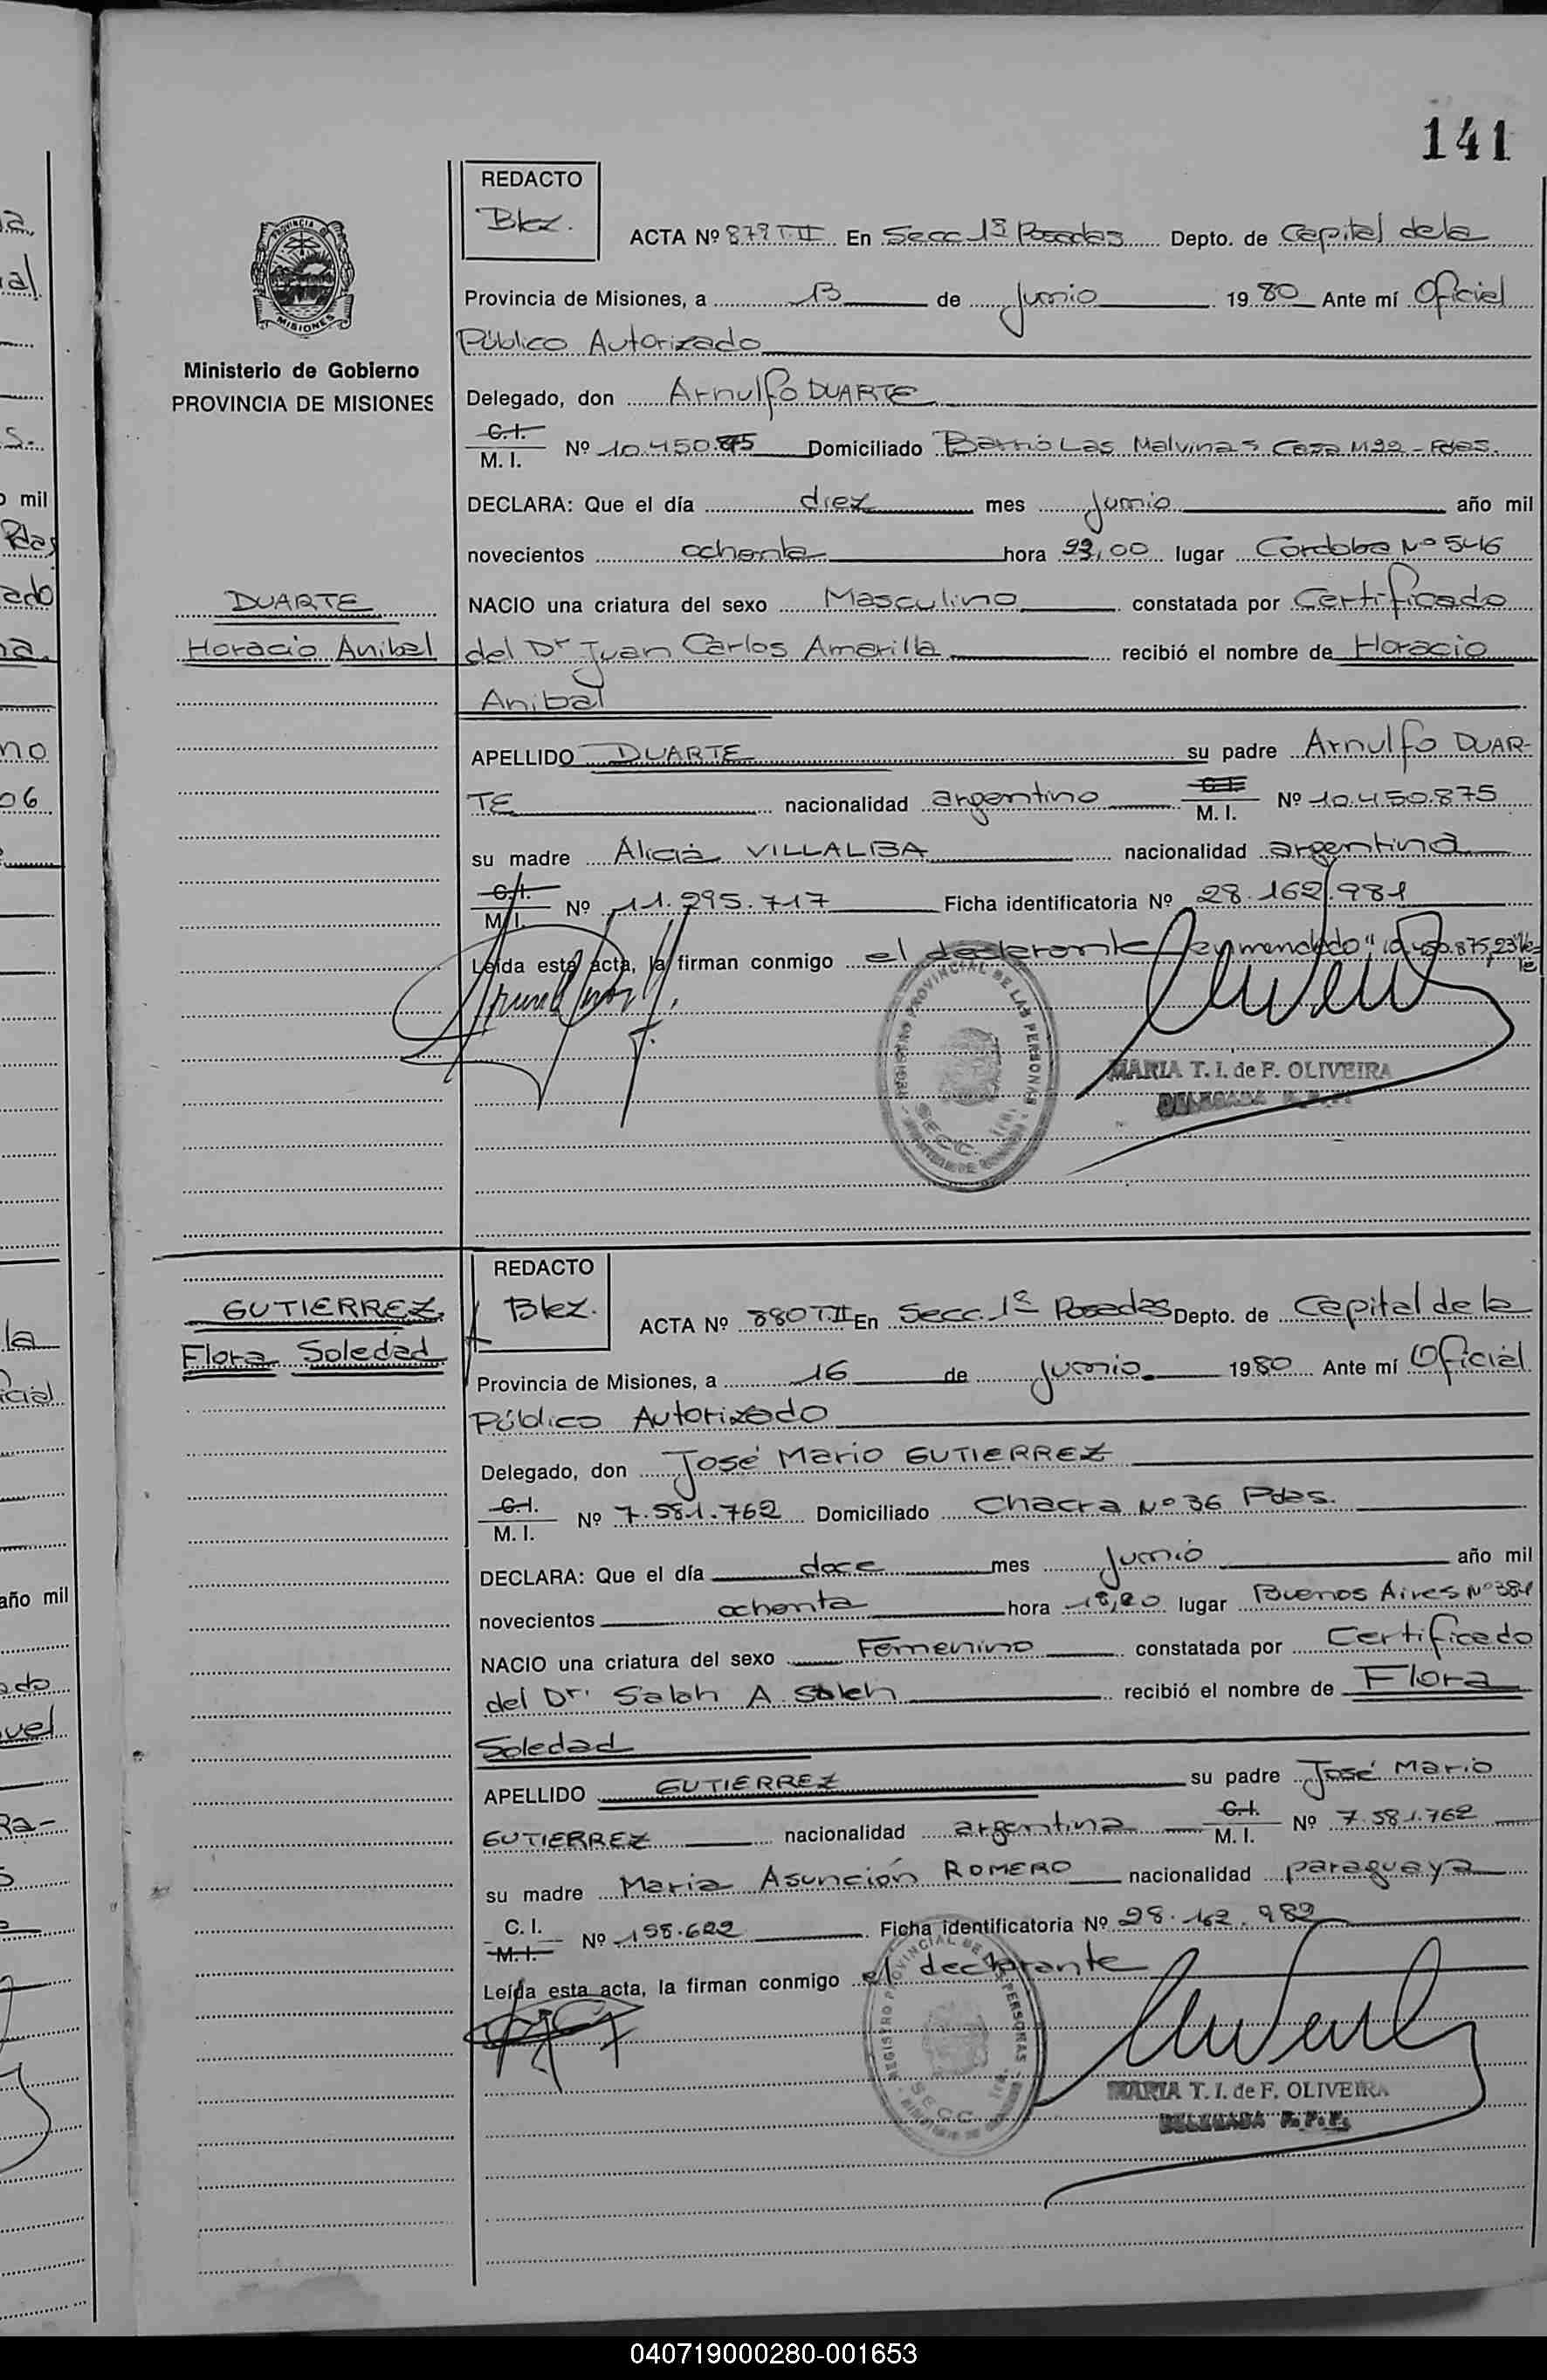 141
REDACTO
Blez.
ACTA Nº 879 T.II En Secc 1ª Posadas Depto. de Capital de la
Provincia de Misiones, a 13 de Junio 1980 Ante mí Oficial
Público Autorizado
Ministerio de Gobierno
PROVINCIA DE MISIONES
Delegado, don Arnulfo DUARTE
C.I.
M. I. Nº 10.450.875 Domiciliado Barrio Las Malvinas Casa M22 - Pdas.
DECLARA: Que el día diez mes Junio año mil
novecientos ochenta hora 23,00 lugar Cordoba Nº 546
DUARTE
NACIO una criatura del sexo Masculino constatada por Certificado
Horacio Anibal
del Dr Juan Carlos Amarilla recibió el nombre de Horacio
Anibal
APELLIDO DUARTE su padre Arnulfo DUAR-
TE nacionalidad argentino C.I. M. I. Nº 10.450.875
su madre Alicia VILLALBA nacionalidad argentina
C.I.
M. I. Nº 11.295.717 Ficha identificatoria Nº 28.162.981
Leída esta acta, la firman conmigo el declarante enmendado "10.450.875, 23" Va-
le
REGISTRO PROVINCIAL DE LAS PERSONAS
SECC. 1ra.
MARIA T. I. de F. OLIVEIRA
DELEGADA R.P.P.
REDACTO
Blez.
GUTIERREZ
Flora Soledad
ACTA Nº 880 T.II En Secc. 1ª Posadas Depto. de Capital de la
Provincia de Misiones, a 16 de Junio 1980 Ante mí Oficial
Público Autorizado
Delegado, don José Mario GUTIERREZ
C.I.
M. I. Nº 7.581.762 Domiciliado Chacra Nº 36 Pdas.
DECLARA: Que el día doce mes Junio año mil
novecientos ochenta hora 18,20 lugar Buenos Aires Nº 381
NACIO una criatura del sexo Femenino constatada por Certificado
del Dr. Salah A. Saleh recibió el nombre de Flora
Soledad
APELLIDO GUTIERREZ su padre José Mario
GUTIERREZ nacionalidad argentina C.I. M. I. Nº 7.581.762
su madre Maria Asunción ROMERO nacionalidad paraguaya
C. I.
M.I. Nº 198.622 Ficha identificatoria Nº 28.162.982
Leída esta acta, la firman conmigo el declarante
REGISTRO PROVINCIAL DE LAS PERSONAS
SECC. 1ra.
MARIA T. I. de F. OLIVEIRA
DELEGADA R.P.P.
040719000280-001653